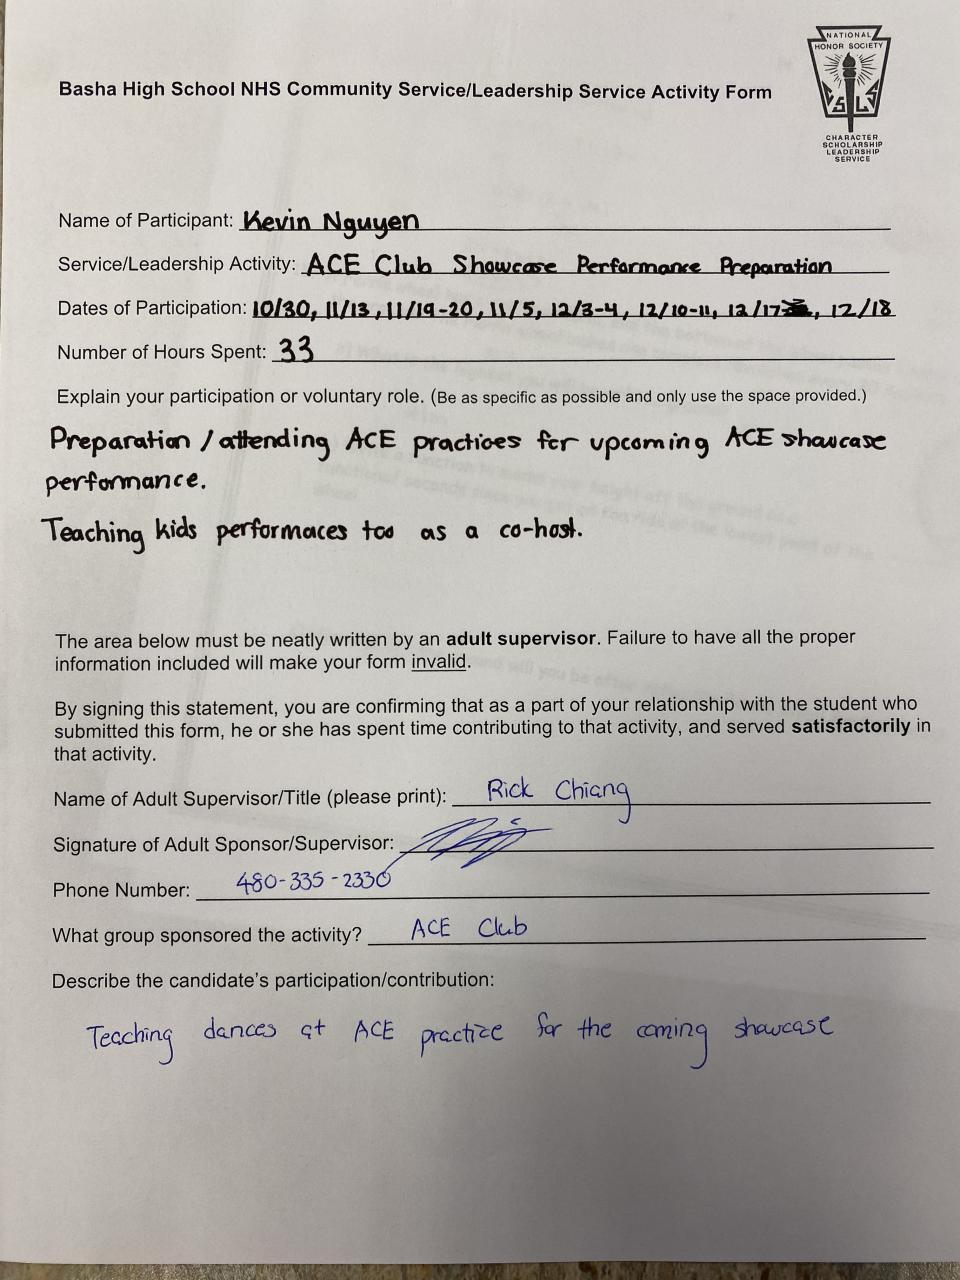 NATIONAL
HONOR SOCIETY
S L S
CHARACTER
SCHOLARSHIP
LEADERSHIP
SERVICE
Basha High School NHS Community Service/Leadership Service Activity Form
Name of Participant: Kevin Nguyen
Service/Leadership Activity: ACE Club Showcase Performance Preparation
Dates of Participation: 10/30, 11/13, 11/19-20, 11/5, 12/3-4, 12/10-11, 12/17, 12/18
Number of Hours Spent: 33
Explain your participation or voluntary role. (Be as specific as possible and only use the space provided.)
Preparation / attending ACE practices for upcoming ACE showcase
performance.
Teaching kids performaces too as a co-host.
The area below must be neatly written by an adult supervisor. Failure to have all the proper
information included will make your form invalid.
By signing this statement, you are confirming that as a part of your relationship with the student who
submitted this form, he or she has spent time contributing to that activity, and served satisfactorily in
that activity.
Name of Adult Supervisor/Title (please print): Rick Chiang
Signature of Adult Sponsor/Supervisor:
Phone Number: 480-335-2330
What group sponsored the activity? ACE Club
Describe the candidate's participation/contribution:
Teaching dances at ACE practice for the coming showcase